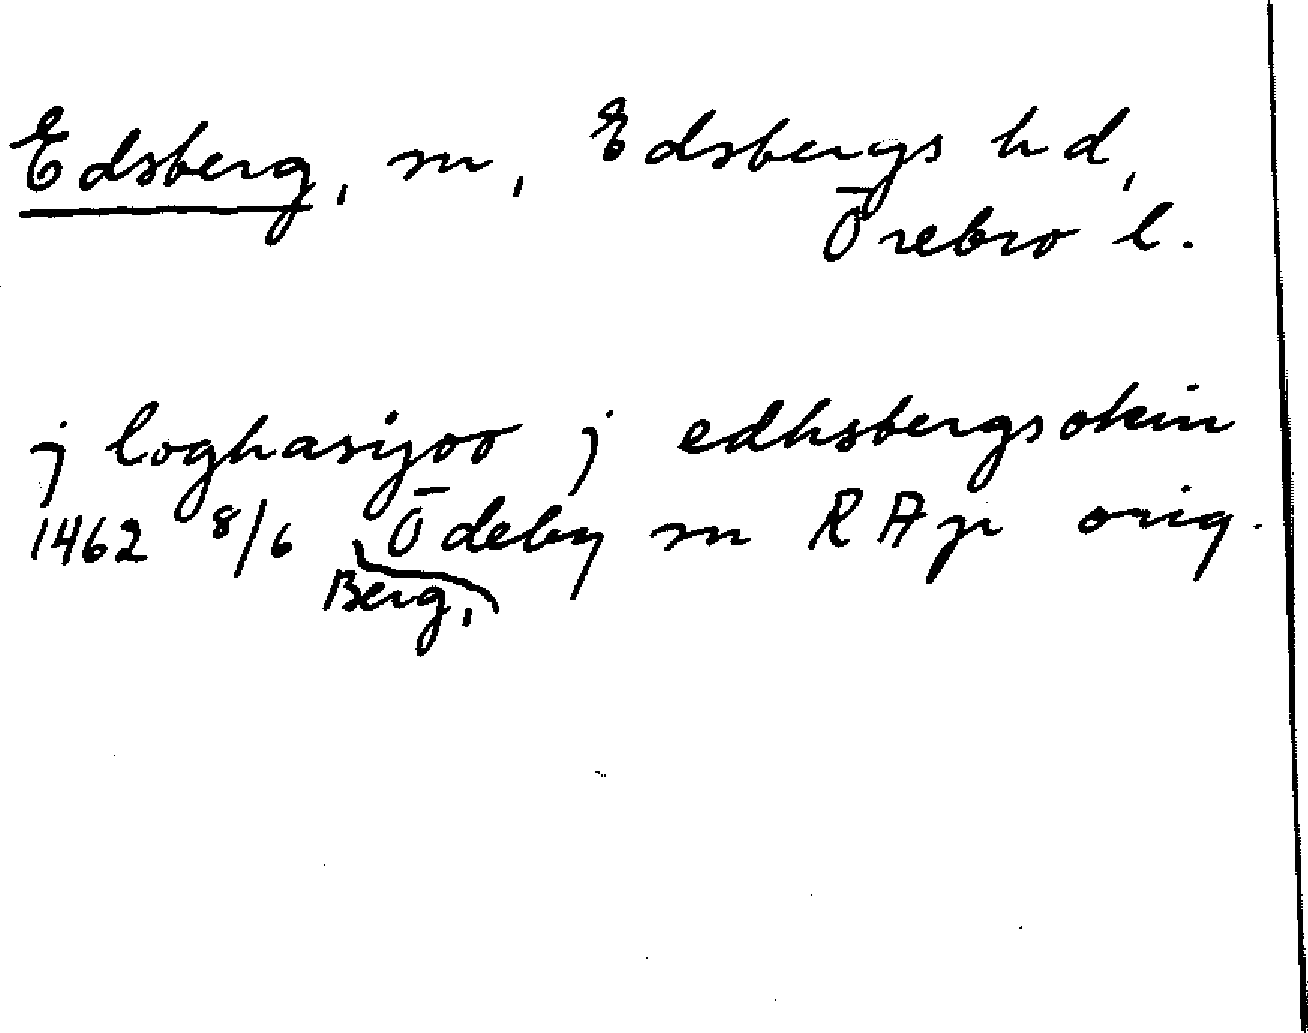 Edsberg, sn, Edsbergs hd,
Örebro l.
j loghasijoo j edhsbergsokin
1462 8/6 Ödeby sn RAp orig.
Berg,